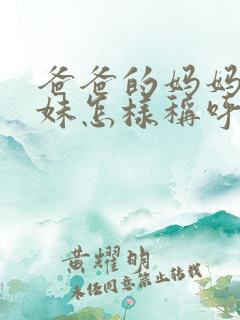 爸爸的妈妈
妹怎様稱呼
黄耀明
未经同意禁止转载